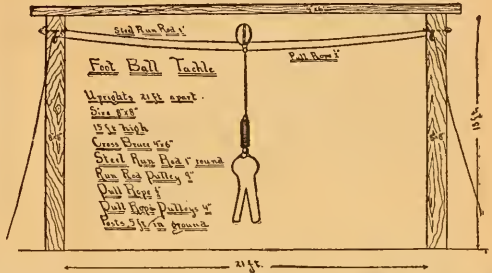 4"x6"
Steel Run Rod 1"
Pull Rope
Foot Ball Tackle
Uprights 21 ft apart.
Size 8"x8"
15 ft high
Cross Brace 4"x6"
Steel Run Rod 1" round
Run Rod Pulley 9"
Pull Rope
Pull Rope Pulleys 4"
Posts 5 ft in ground
8"x8"
8"x8"
15 ft
21 ft.